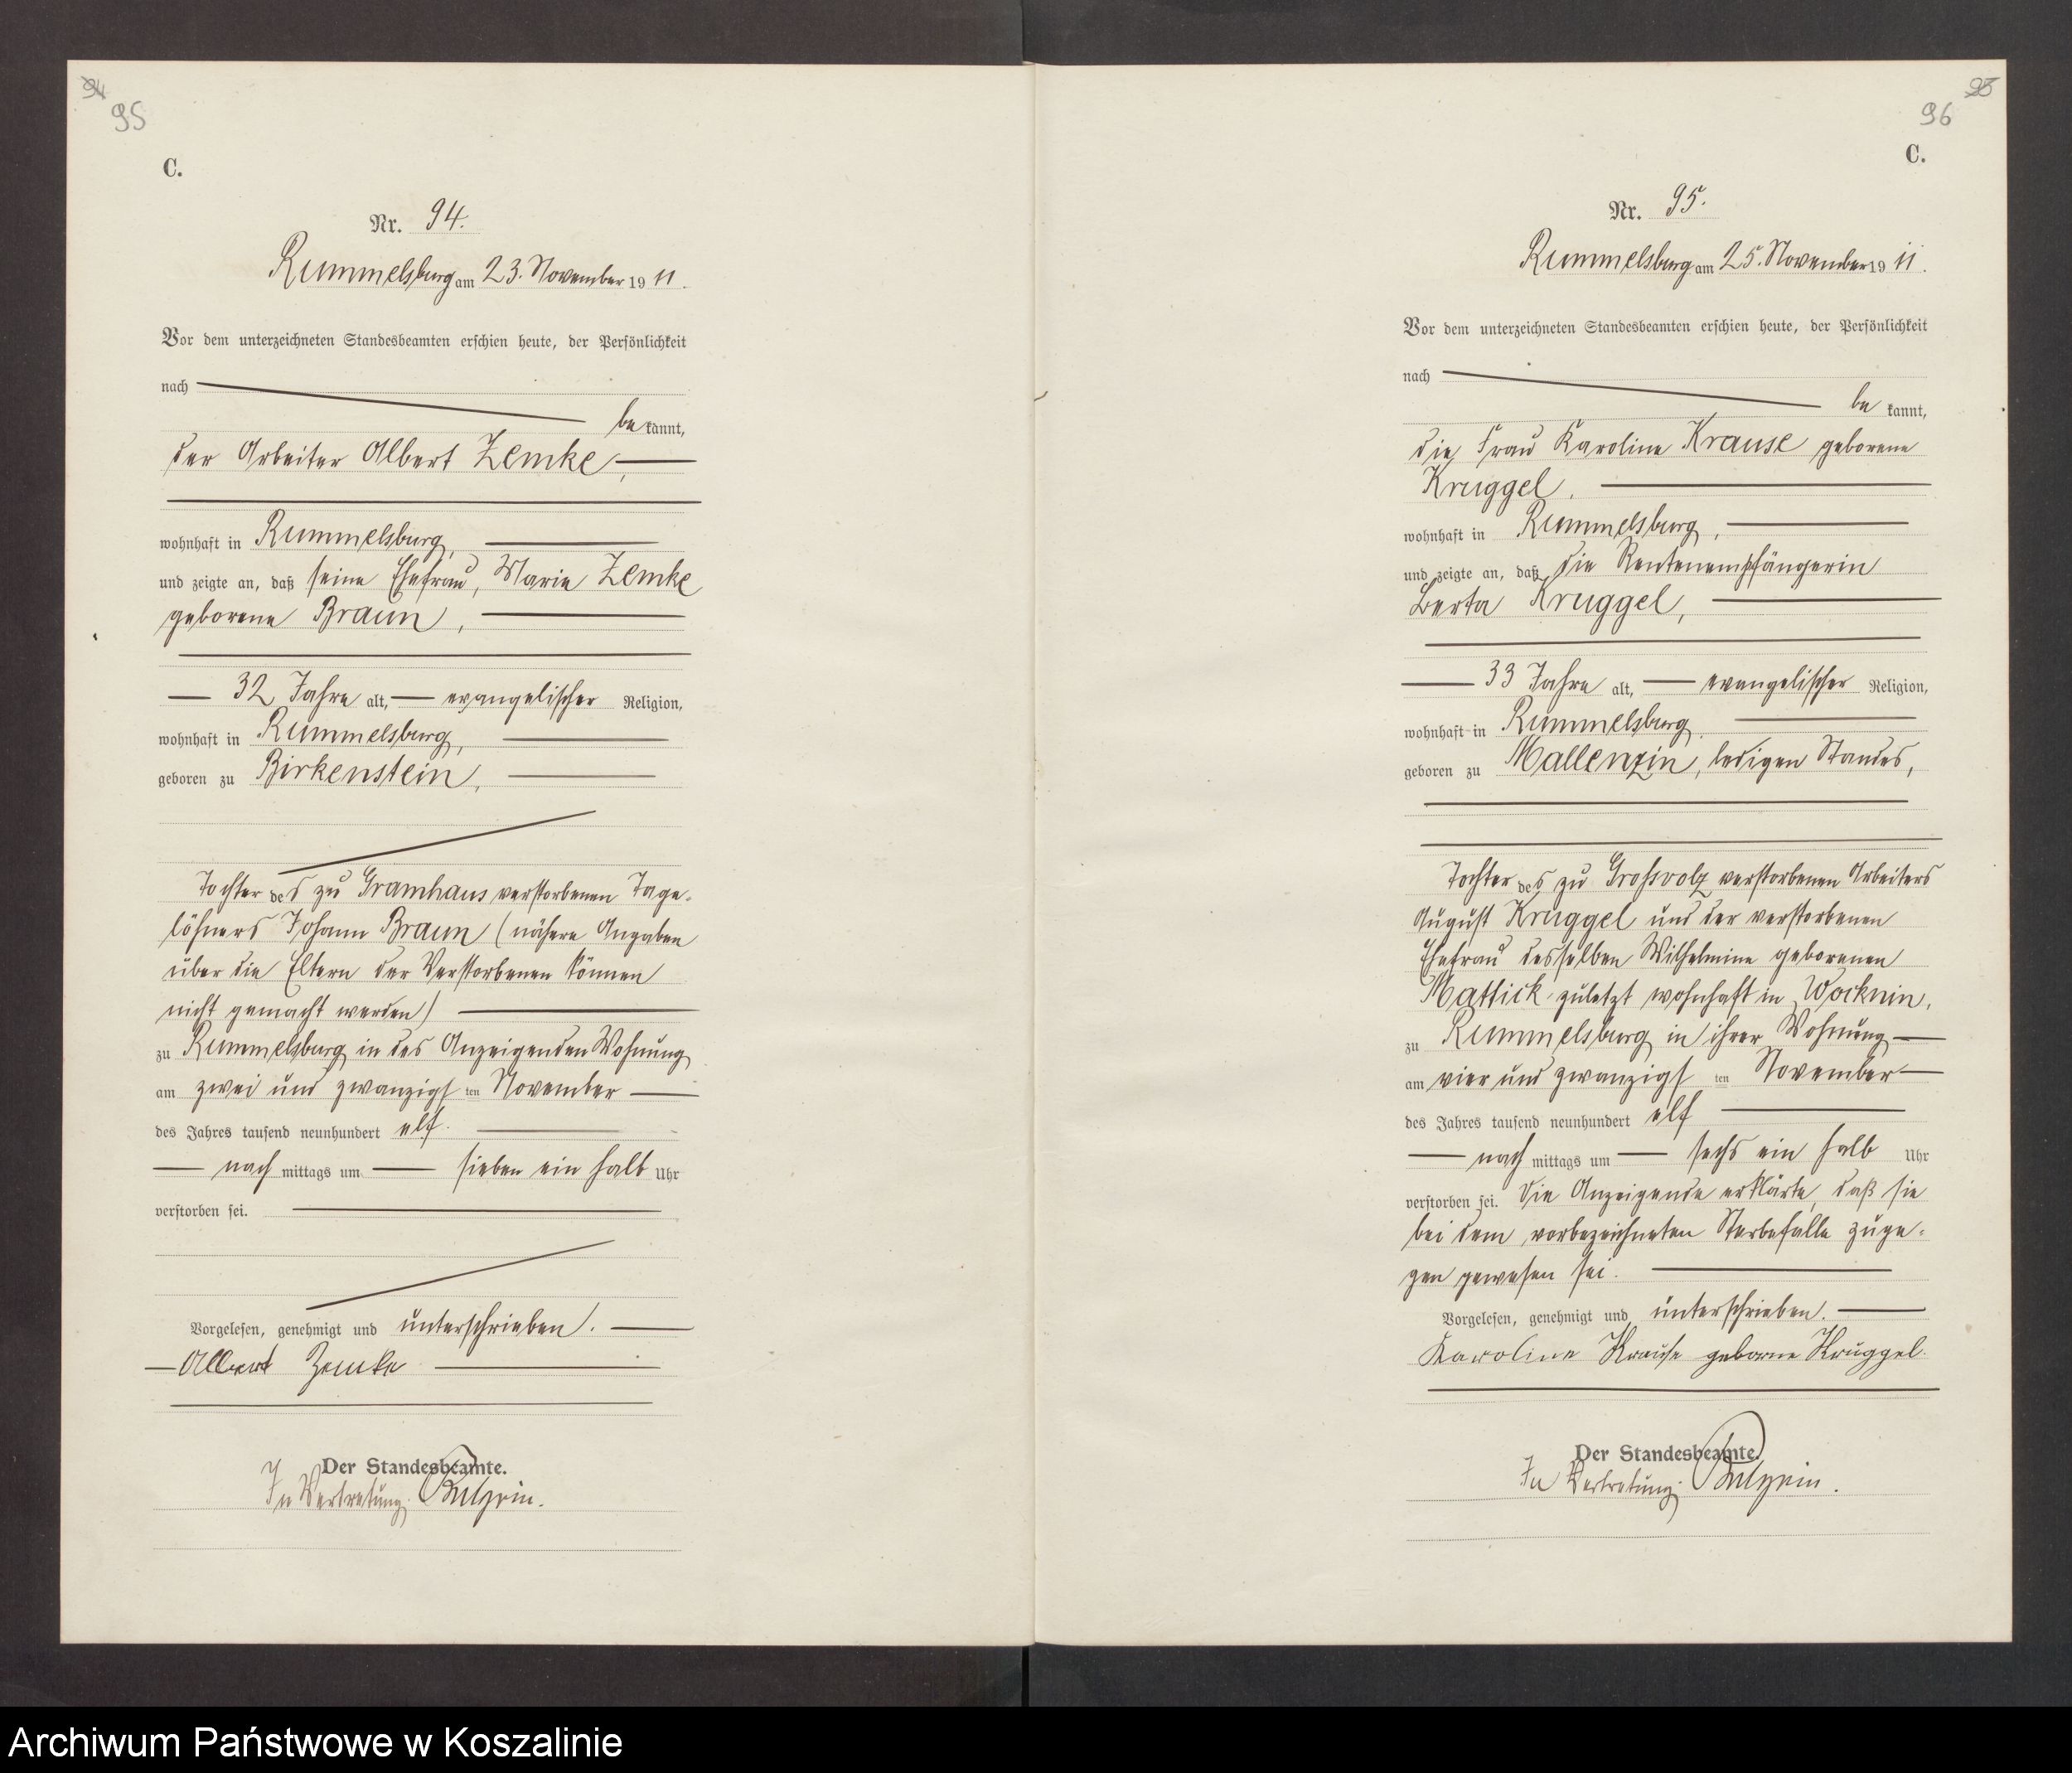 94
95
C.
Nr. 94.
Rummelsburg am 23. November 1911.
Vor dem unterzeichneten Standesbeamten erschien heute, der Persönlichkeit
nach
be kannt,
der Arbeiter Albert Zemke,
wohnhaft in Rummelsburg,
und zeigte an, daß seine Ehefrau, Marie Zemke
geborene Braun,
32 Jahre alt, evangelischer Religion,
wohnhaft in Rummelsburg,
geboren zu Birkenstein,
Tochter des zu Gramhaus verstorbenen Tage-
löhners Johann Braun (nähere Angaben
über die Eltern der Verstorbenen können
nicht gemacht werden)
zu Rummelsburg in des Anzeigenden Wohnung
am zwei und zwanzigsten November
des Jahres tausend neunhundert elf
nach mittags um sieben ein halb Uhr
verstorben sei.
Vorgelesen, genehmigt und unterschrieben.
Albert Zemke
Der Standesbeamte.
In Vertretung:
95
96
C.
Nr. 95.
Rummelsburg am 25. November 1911.
Vor dem unterzeichneten Standesbeamten erschien heute, der Persönlichkeit
nach
be kannt,
die Frau Karoline Krause geborene
Kruggel,
wohnhaft in Rummelsburg,
und zeigte an, daß die Rentenempfängerin
Berta Kruggel,
33 Jahre alt, evangelischer Religion,
wohnhaft in Rummelsburg,
geboren zu Mallenzin, ledigen Standes,
Tochter des zu Großvolz verstorbenen Arbeiters
August Kruggel und der verstorbenen
Ehefrau desselben Wilhelmine geborenen
Mattick zuletzt wohnhaft in Wocknin,
zu Rummelsburg in ihrer Wohnung
am vier und zwanzigsten November
des Jahres tausend neunhundert elf
nach mittags um sechs ein halb Uhr
verstorben sei. Die Anzeigende erklärte, daß sie
bei dem vorbezeichneten Sterbefalle zuge-
gen gewesen sei.
Vorgelesen, genehmigt und unterschrieben.
Karoline Krause geborne Kruggel.
Der Standesbeamte.
In Vertretung:
Archiwum Państwowe w Koszalinie